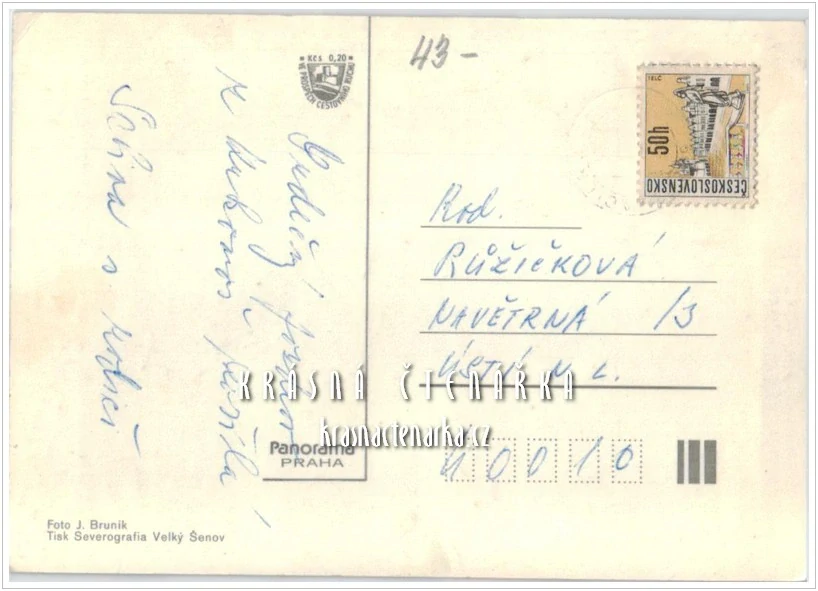 Kčs 0,20
VE PROSPĚCH CESTOVNÍHO RUCHU
43-
TELČ
50h
ČESKOSLOVENSKO
Srdečný pozdrav
z Krkonoš posílá
s rodiči
Rod.
RŮŽIČKOVÁ
NAVĚTRNÁ /3
ÚSTÍ N. L.
40010
KRÁSNÁ ČTENÁŘKA
krasnactenarka.cz
Panorama
PRAHA
Foto J. Bruník
Tisk Severografia Velký Šenov